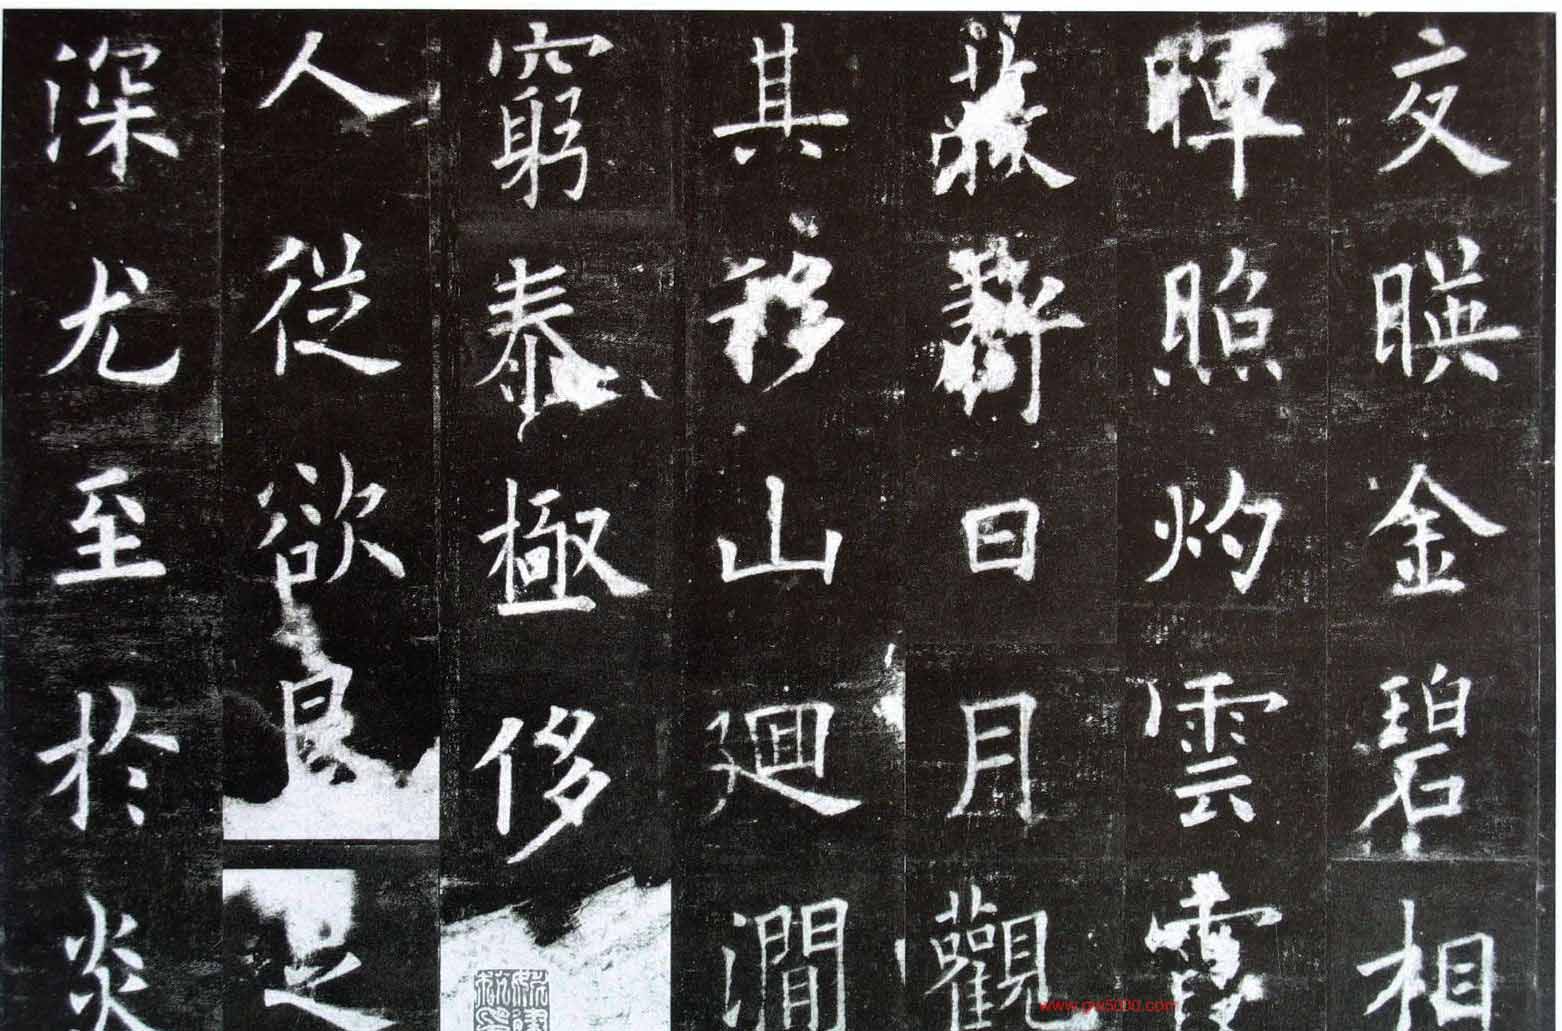 交暎金碧相
暉照灼雲霞
蔽虧日月觀
其移山廻澗
窮泰極侈
人從欲良
深尤至於炎